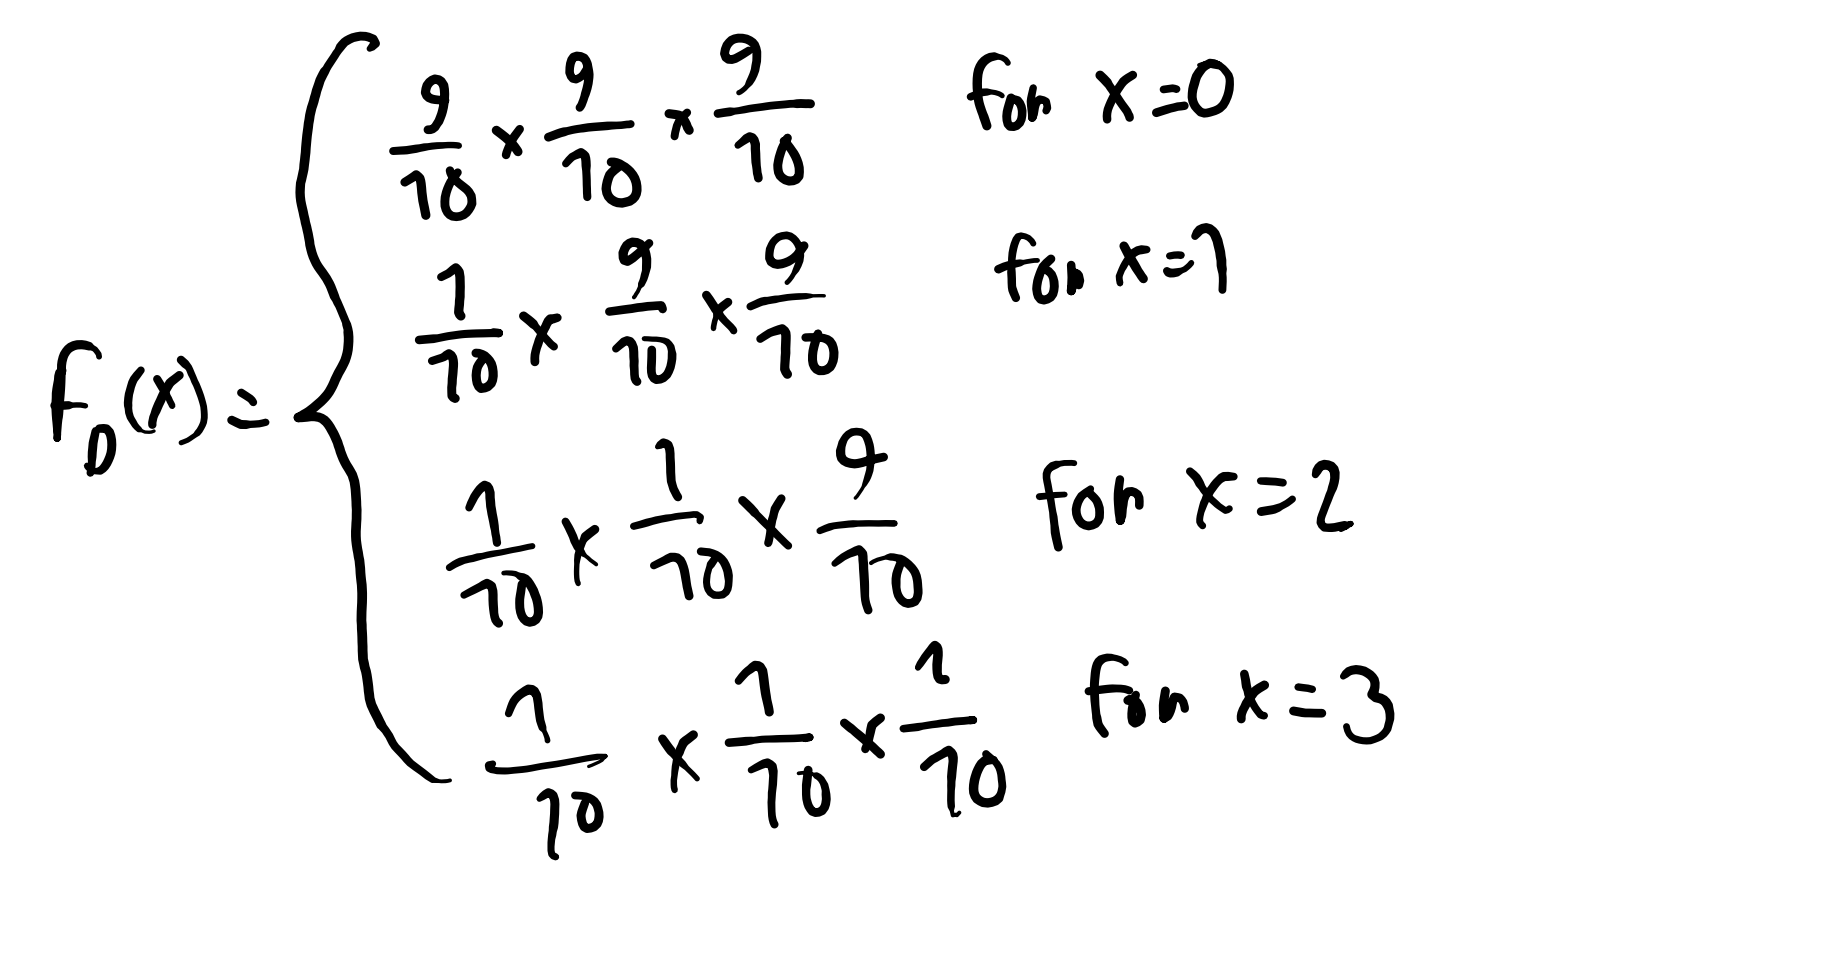 9/10 × 9/10 × 9/10 for x=0
1/10 × 9/10 × 9/10 for x=1
f_D(x) =
1/10 × 1/10 × 9/10 for x=2
1/10 × 1/10 × 1/10 for x=3